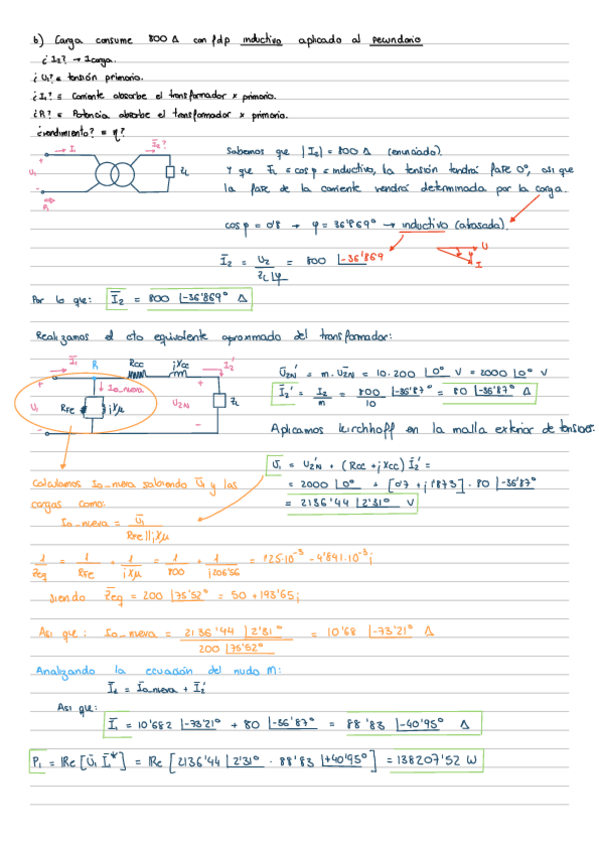 b) Carga consume 800 A con fdp inductivo aplicado al secundario
¿I₂? → Icarga.
¿U₁? = tensión primario.
¿I₁? = Corriente absorbe el transformador x primario.
¿P₁? = Potencia absorbe el transformador x primario.
¿rendimiento? = η?
I₁
I₂?
U₁
+
-
P₁
ZL
Sabemos que |I₂| = 800 A (enunciado).
Y que = cos φ = inductivo, la tensión tendrá fase 0°, así que
la fase de la corriente vendrá determinada por la carga.
cos φ = 0'8 → φ = 36'869° → inductivo (atrasada).
I₂ = U₂ / ZL|φ = 800 |-36'869
U
I
Por lo que: I₂ = 800 |-36'869° A
Realizamos el cto equivalente aproximado del transformador:
I₁
R
Rcc
jXcc
I₂'
Io_nueva
U₁
RFe
jXμ
U₂N
ZL
U₂N' = m · U₂N = 10 · 200 |0° V = 2000 |0° V
I₂' = I₂/m = 800/10 |-36'87° = 80 |-36'87° A
Aplicamos Kirchhoff en la malla exterior de tensiones.
U₁ = U₂N + (Rcc + jXcc) I₂' =
= 2000 |0° + [0'7 + j1'873] · 80 |-36'87°
= 2136'44 |2'31° V
Calculamos Io_nueva sabiendo U₁ y las
cargas como:
Io_nueva = U₁ / RFe||jXμ
1/Zeq = 1/RFe + 1/jXμ = 1/800 + 1/j206'56 = 1'25·10⁻³ - 4'841·10⁻³j
siendo Zeq = 200 |75'52° = 50 + 193'65j
Así que: Io_nueva = 2136'44 |2'31° / 200 |75'52° = 10'68 |-73'21° A
Analizando la ecuación del nudo M:
I₁ = Io_nueva + I₂'
Así que:
I₁ = 10'682 |-73'21° + 80 |-36'87° = 88'83 |-40'95° A
P₁ = Re [U₁ I₁*] = Re [2136'44 |2'31° · 88'83 |+40'95°] = 138207'52 W